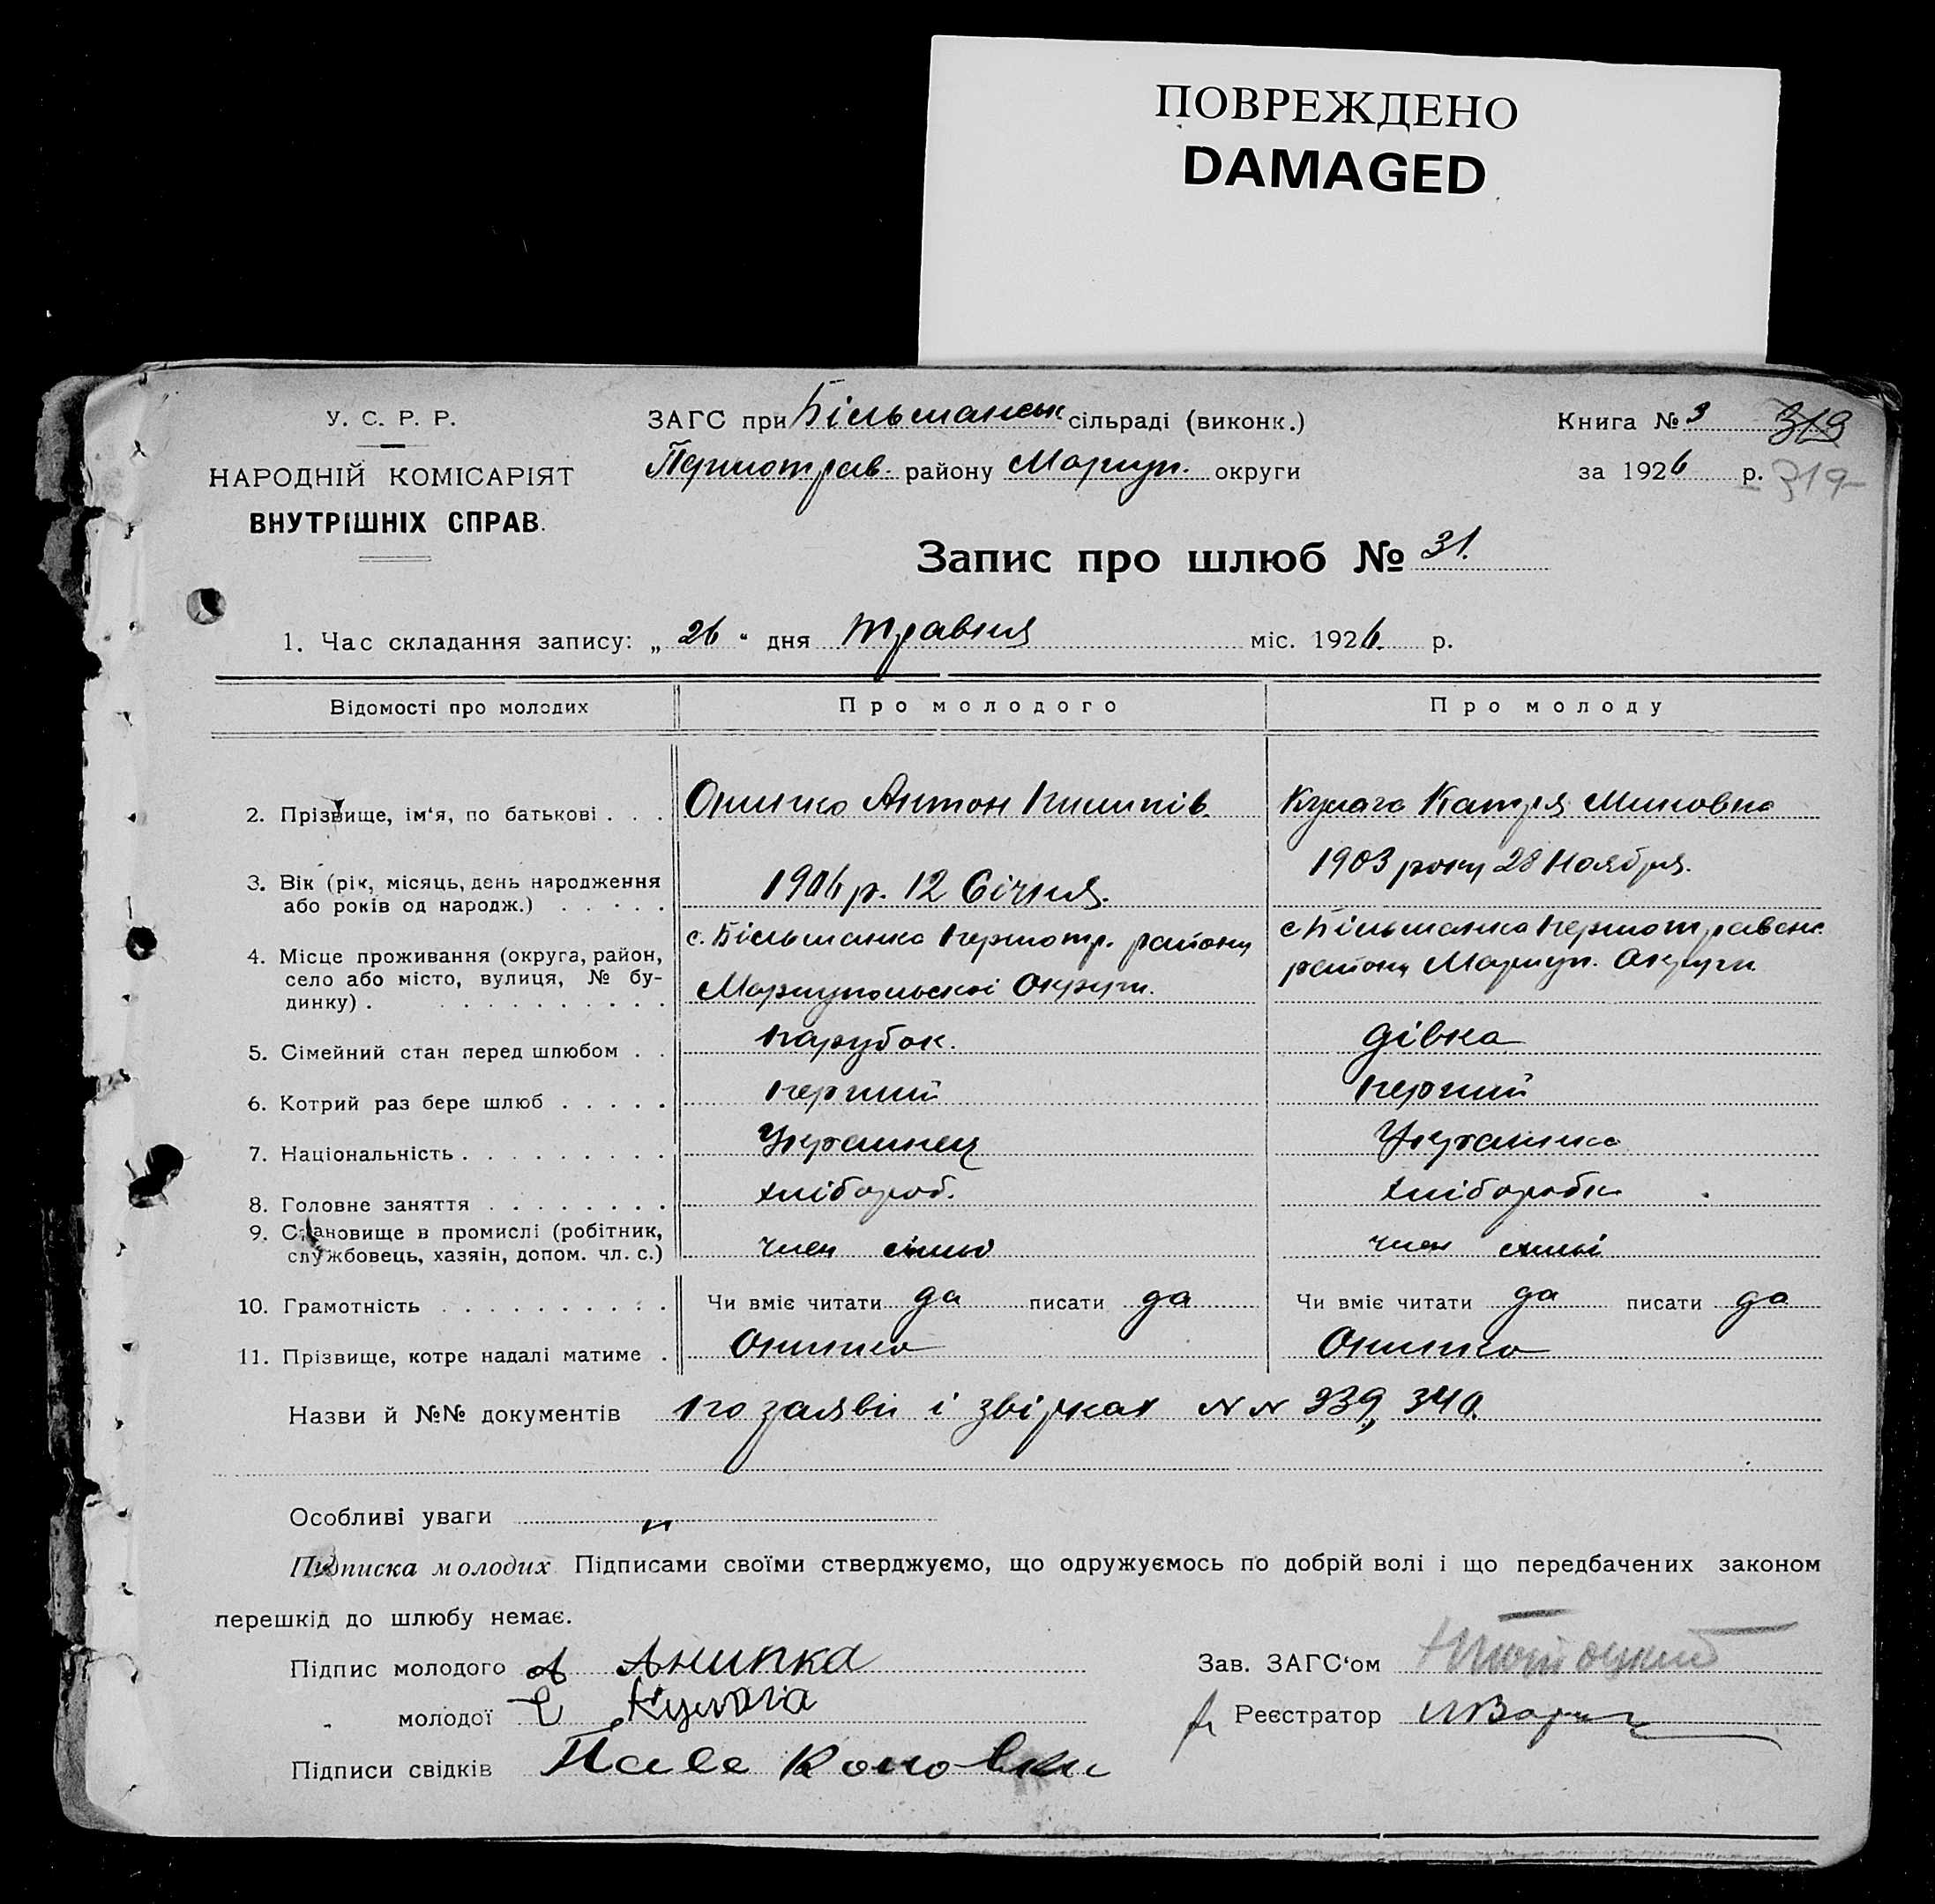 ПОВРЕЖДЕНО
DAMAGED
У. С. Р. Р.
НАРОДНІЙ КОМІСАРІЯТ
ВНУТРІШНІХ СПРАВ.
ЗАГС при Більманськ. сільраді (виконк.)
Першотрав. району Маріуп. округи
Книга № 3 319
за 1926 р. 319
Запис про шлюб № 31.
1. Час складання запису: „ 26 " дня травня міс. 1926. р.
Відомості про молодих
Про молодого
Про молоду
2. Прізвище, ім'я, по батькові . . .
Онипко Антон Пилипів.
Кулага Катря Миновна
3. Вік (рік, місяць, день народження
або років од народж.) . . . . .
1906 р. 12 Січня.
1903 року 28 Ноября.
4. Місце проживання (округа, район,
село або місто, вулиця, № бу-
динку) . . . . . . . . . . .
с. Більманка Першотр. району
Маріупольскоі Округи.
с Більманка Першотравенс.
району Маріуп. Округи.
5. Сімейний стан перед шлюбом . .
парубок.
дівка
6. Котрий раз бере шлюб . . . . .
перший
перший
7. Національність . . . . . . . . .
Украинец
Украинка
8. Головне заняття . . . . . . . .
хлібороб.
хліборобка
9. Становище в промислі (робітник,
службовець, хазяін, допом. чл. с.)
член
член сімьі
10. Грамотність . . . . . . . . . .
Чи вміє читати да писати да
Чи вміє читати да писати да
11. Прізвище, котре надалі матиме .
Онипко
Онипко
Назви й №№ документів по заяві і звірках NN 339, 340.
Особливі уваги "
Підписка молодих Підписами своїми стверджуємо, що одружуємось по добрій волі і що передбачених законом
перешкід до шлюбу немає.
Підпис молодого А Анипка
" молодої Е Кулага
Підписи свідків
Зав. ЗАГС'ом
Реєстратор